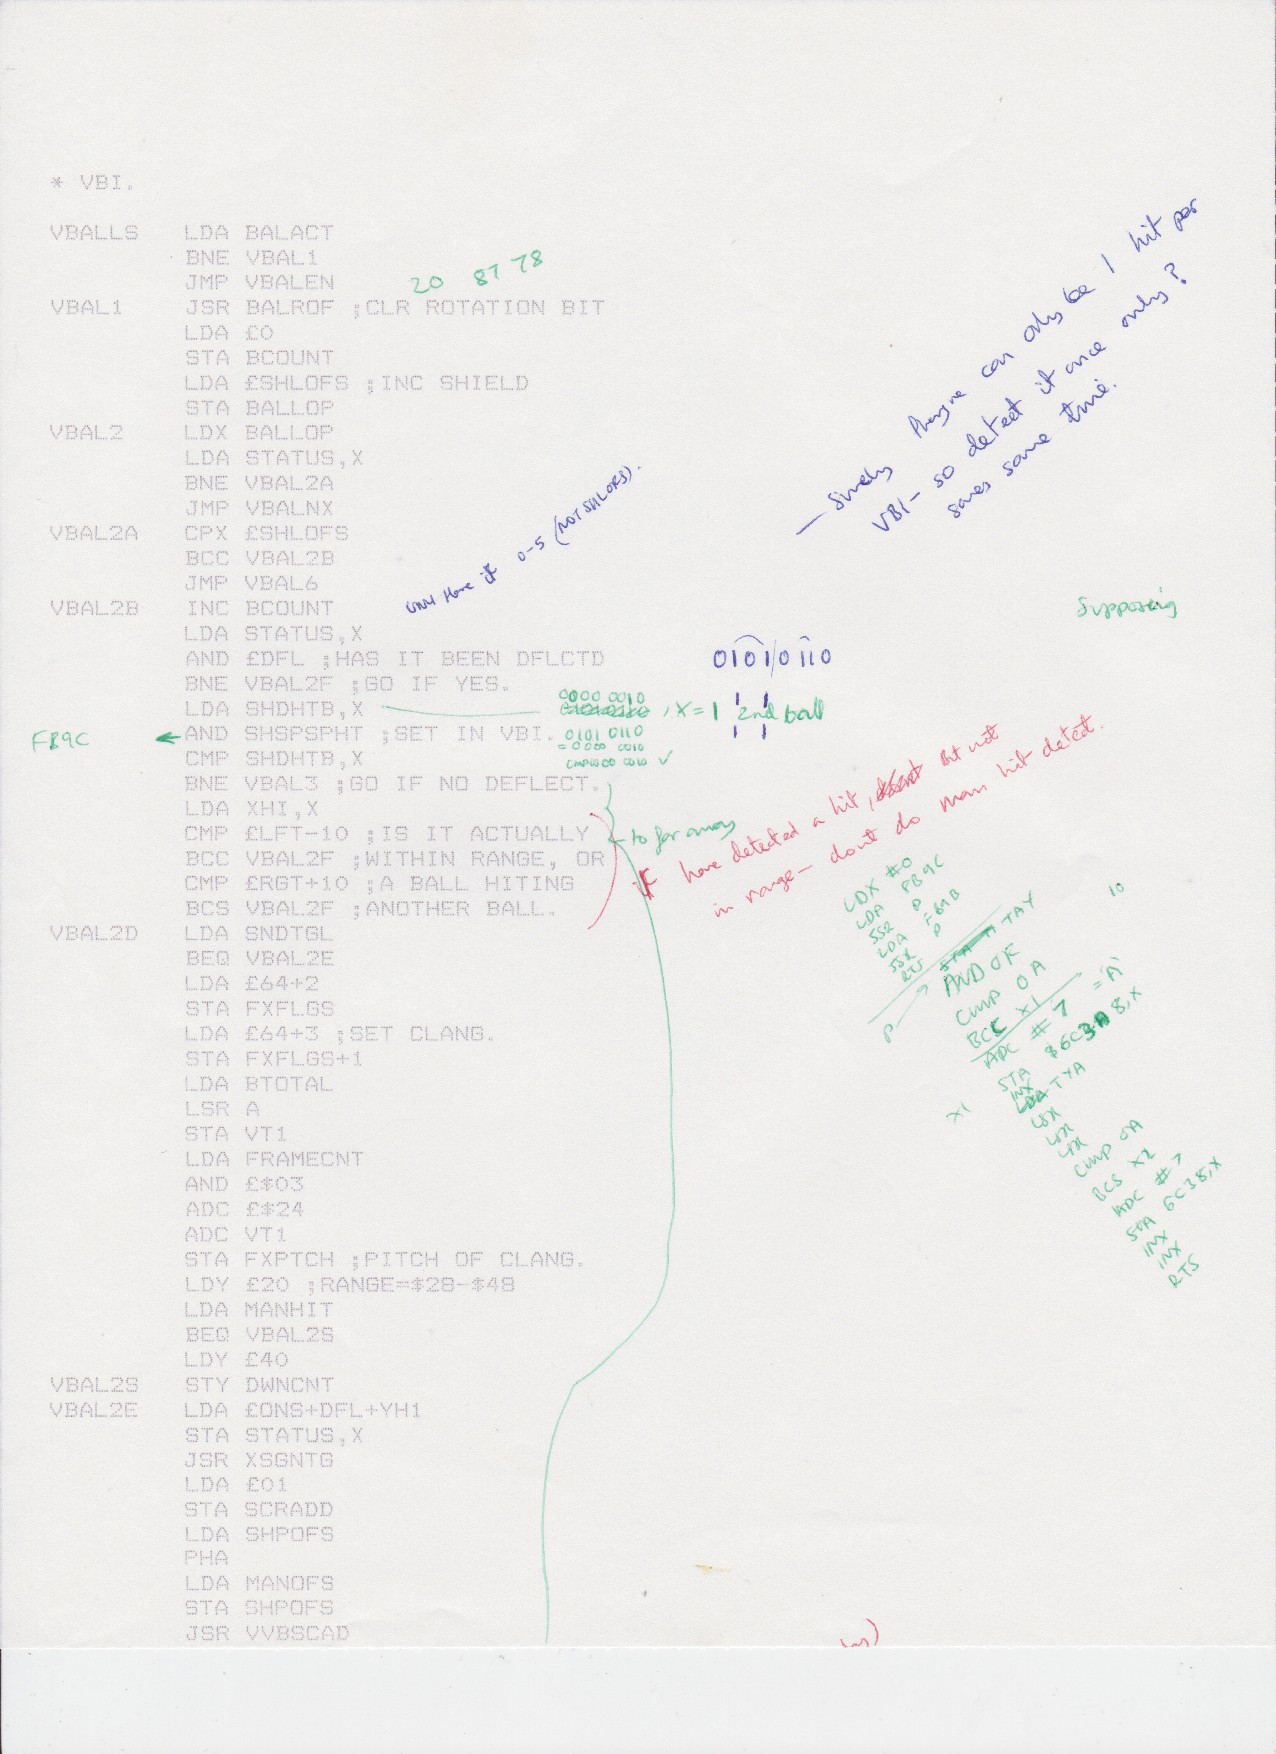 * VBI.
VBALLS LDA BALACT
BNE VBAL1
JMP VBALEN
20 87 78
VBAL1 JSR BALROF ;CLR ROTATION BIT
LDA £0
STA BCOUNT
LDA £SHLOFS ;INC SHIELD
STA BALLOP
VBAL2 LDX BALLOP
LDA STATUS,X
BNE VBAL2A
JMP VBALNX
VBAL2A CPX £SHLOFS
BCC VBAL2B
JMP VBAL6
VBAL2B INC BCOUNT
LDA STATUS,X
AND £DFL ;HAS IT BEEN DFLCTD
BNE VBAL2F ;GO IF YES.
LDA SHDHTB,X
AND SHSPSPHT ;SET IN VBI.
CMP SHDHTB,X
BNE VBAL3 ;GO IF NO DEFLECT.
LDA XHI,X
CMP £LFT-10 ;IS IT ACTUALLY
BCC VBAL2F ;WITHIN RANGE, OR
CMP £RGT+10 ;A BALL HITING
BCS VBAL2F ;ANOTHER BALL.
VBAL2D LDA SNDTGL
BEQ VBAL2E
LDA £64+2
STA FXFLGS
LDA £64+3 ;SET CLANG.
STA FXFLGS+1
LDA BTOTAL
LSR A
STA VT1
LDA FRAMECNT
AND £$03
ADC £$24
ADC VT1
STA FXPTCH ;PITCH OF CLANG.
LDY £20 ;RANGE=$28-$48
LDA MANHIT
BEQ VBAL2S
LDY £40
VBAL2S STY DWNCNT
VBAL2E LDA £ONS+DFL+YH1
STA STATUS,X
JSR XSGNTG
LDA £01
STA SCRADD
LDA SHPOFS
PHA
LDA MANOFS
STA SHPOFS
JSR VVBSCAD
— Surely there can only be 1 hit per
VBI — so detect it once only?
saves some time.
here if 0-5 (NOT SHLOFS).
Supposing
01010110
0000 0010
, X=1 2nd ball
0101 0110
=0000 0010
CMP 0000 0010 ✓
FB9C
to far away
If have detected a hit, but not
in range — dont do man hit detect.
LDX #0
LDA FB9C
LDA FB9B
RTS
P
TAY
10
AND 0F
CMP 0A
X1
ADC #7 ='A'
STA $6C38,X
INX
TYA
X1
CMP 0A
BCS X2
ADC #7
STA 6C38,X
INX
INX
RTS